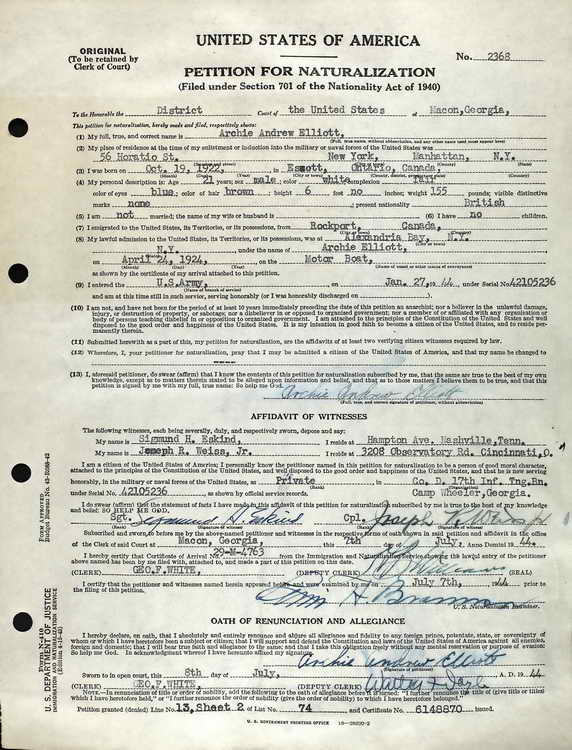 ORIGINAL
(To be retained by
Clerk of Court)
UNITED STATES OF AMERICA
No. 2368
PETITION FOR NATURALIZATION
(Filed under Section 701 of the Nationality Act of 1940)
To the Honorable the District Court of the United States at Macon, Georgia,
This petition for naturalization, hereby made and filed, respectfully shows:
(1) My full, true, and correct name is Archie Andrew Elliott,
(Full, true name, without abbreviation, and any other name used must appear here)
(2) My place of residence at the time of my enlistment or induction into the military or naval forces of the United States was
56 Horatio St. New York, Manhattan, N.Y.
(3) I was born on Oct. 19, 1922, in Escott, Ontario, Canada,
(4) My personal description is: Age 21 years; sex male; color white complexion fair
color of eyes blue; color of hair brown; height 6 feet no inches; weight 155 pounds; visible distinctive
marks none; present nationality British
(5) I am not married; the name of my wife or husband is (6) I have no children.
(7) I emigrated to the United States, its Territories, or its possessions, from Rockport, Canada,
(8) My lawful admission to the United States, its Territories, or its possessions, was at Alexandria Bay, N.Y.
N.Y. under the name of Archie Elliott,
on April 24, 1924, on the Motor Boat,
as shown by the certificate of my arrival attached to this petition.
(9) I entered the U.S. Army, on Jan. 27, 44 under Serial No 42105236
(Name of branch of service)
and am at this time still in such service, serving honorably (or I was honorably discharged on ).
(10) I am not, and have not been for the period of at least 10 years immediately preceding the date of this petition an anarchist; nor a believer in the unlawful damage,
injury, or destruction of property, or sabotage; nor a disbeliever in or opposed to organized government; nor a member of or affiliated with any organization or
body of persons teaching disbelief in or opposition to organized government. I am attached to the principles of the Constitution of the United States and well
disposed to the good order and happiness of the United States. It is my intention in good faith to become a citizen of the United States, and to reside permanently therein.
(11) Submitted herewith as a part of this, my petition for naturalization, are the affidavits of at least two verifying citizen witnesses required by law.
(12) Wherefore, I, your petitioner for naturalization, pray that I may be admitted a citizen of the United States of America, and that my name be changed to
----
(13) I, aforesaid petitioner, do swear (affirm) that I know the contents of this petition for naturalization subscribed by me, that the same are true to the best of my own
knowledge, except as to matters therein stated to be alleged upon information and belief, and that as to those matters I believe them to be true, and that this
petition is signed by me with my full, true name: So help me God.
Archie Andrew Elliott
(Full, true, and correct signature of petitioner, without abbreviation)
AFFIDAVIT OF WITNESSES
The following witnesses, each being severally, duly, and respectively sworn, depose and say:
My name is Sigmund H. Eskind, I reside at Hampton Ave. Nashville, Tenn.
My name is Joseph R. Weiss, Jr. I reside at 3208 Observatory Rd. Cincinnati, O.
I am a citizen of the United States of America; I personally know the petitioner named in this petition for naturalization to be a person of good moral character,
attached to the principles of the Constitution of the United States, and well disposed to the good order and happiness of the same, and that he is now serving
honorably, in the military or naval forces of the United States, as Private in Co. D. 17th Inf. Tng. Bn.
under Serial No. 42105236 as shown by official service records. Camp Wheeler, Georgia.
and belief: SO HELP ME GOD.
Sgt. Sigmund H. Eskind Cpl. Joseph R. Weiss Jr
Subscribed and sworn to before me by the above-named petitioner and witnesses in the respective forms of oath shown in said petition and affidavit in the office
of the Clerk of said Court at Macon, Georgia, this 7th day of July, Anno Domini 1944.
I hereby certify that Certificate of Arrival No. 29-M-4763 from the Immigration and Naturalization Service showing the lawful entry of the petitioner
above named has been by me filed with, attached to, and made a part of this petition on this date.
(CLERK) GEO.F.WHITE, (DEPUTY CLERK) (SEAL)
I certify that the petitioner and witnesses named herein appeared before and were examined by me on July 7th, 1944 prior to
the filing of this petition.
U. S. Naturalization Examiner.
OATH OF RENUNCIATION AND ALLEGIANCE
I hereby declare, on oath, that I absolutely and entirely renounce and abjure all allegiance and fidelity to any foreign prince, potentate, state, or sovereignty of
whom or which I have heretofore been a subject or citizen; that I will support and defend the Constitution and laws of the United States of America against all enemies,
foreign and domestic; that I will bear true faith and allegiance to the same; and that I take this obligation freely without any mental reservation or purpose of evasion:
So help me God. In acknowledgment whereof I have hereunto affixed my signature.
Archie Andrew Elliott
Sworn to in open court, this 8th day of July, A. D. 1944
(CLERK) GEO.F.WHITE, (DEPUTY CLERK)
NOTE.—In renunciation of title or order of nobility, add the following to the oath of allegiance before it is signed: "I further renounce the title of (give title or titles)
which I have heretofore held," or "I further renounce the order of nobility (give the order of nobility) to which I have heretofore belonged."
Petition granted (denied) Line No 13, Sheet 2 of List No. 74 and Certificate No. 6148870 issued.
U. S. GOVERNMENT PRINTING OFFICE 16—28020-2
Form N-410
U. S. DEPARTMENT OF JUSTICE
IMMIGRATION AND NATURALIZATION SERVICE